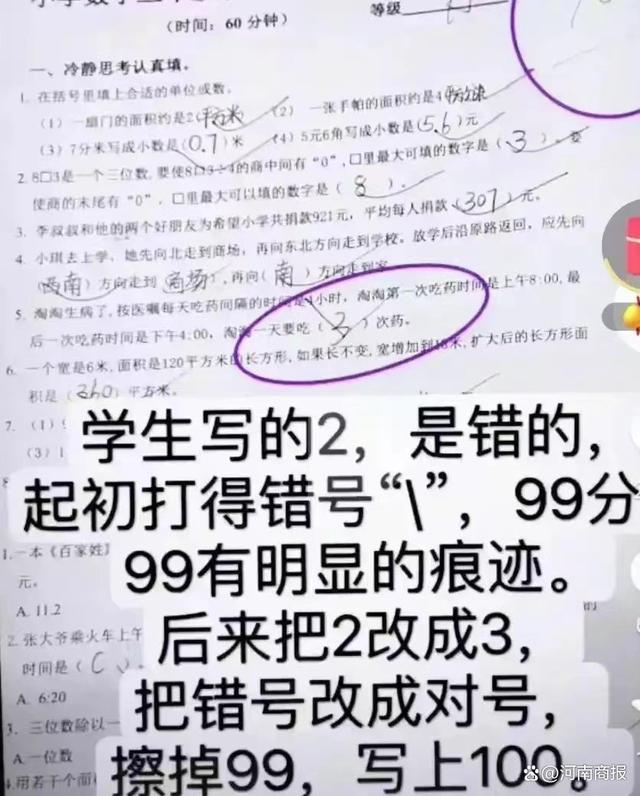 (时间：60分钟)
等级
一、冷静思考认真填。
1. 在括号里填上合适的单位或数。
(1) 一扇门的面积约是2(平方米
(2) 一张手帕的面积约是4(平方分米
(3) 7分米写成小数是(0.7)米 (4) 5元6角写成小数是(5.6)元
2. 8□3是一个三位数,要使8□3÷4的商中间有“0”,□里最大可填的数字是(3)。要
使商的末尾有“0”,□里最大可以填的数字是(8)。
3. 李叔叔和他的两个好朋友为希望小学共捐款921元,平均每人捐款(307)元。
4. 小琪去上学,她先向北走到商场,再向东北方向走到学校。放学后沿原路返回,应先向
(西南)方向走到(商场),再向(南)方向走到家
5. 淘淘生病了,按医嘱每天吃药间隔的时间是4小时,淘淘第一次吃药时间是上午8:00,最
后一次吃药时间是下午4:00,淘淘一天要吃(3)次药。
6. 一个宽是6米,面积是120平方米的长方形,如果长不变,宽增加到18米,扩大后的长方形面
积是(360)平方米。
7. (1)
(3)1
学生写的2，是错的，
起初打得错号“\”，99分
99有明显的痕迹。
后来把2改成3，
把错号改成对号，
擦掉99，写上100。
1.一本《百家姓》
元。
A. 11.2
2. 张大爷乘火车上午
时间是(C)。
A. 6:20
3. 三位数除以一
A.一位数
4.用若干个面
的
河南商报